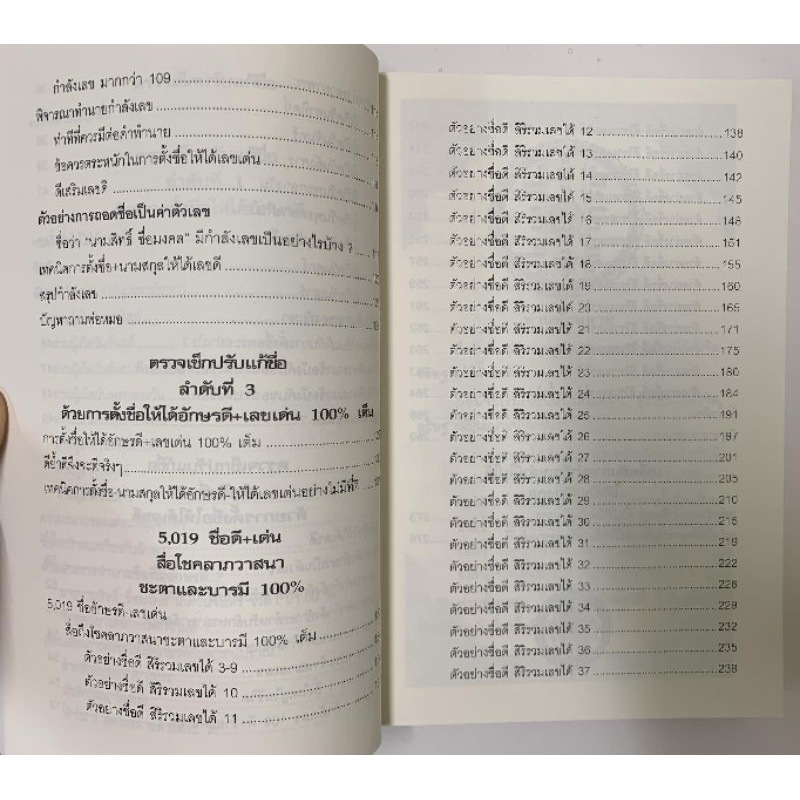 กำลังเลข มากกว่า 109
พิจารณาทำนายกำลังเลข
ท่าทีที่ควรมีต่อคำทำนาย
ข้อควรตระหนักในการตั้งชื่อให้ได้เลขเด่น
ดีเสริมเลขดี
ตัวอย่างการถอดชื่อเป็นค่าตัวเลข
ชื่อว่า "นามสิทธิ์ ชื่อมงคล" มีกำลังเลขเป็นอย่างไรบ้าง ?
เทคนิคการตั้งชื่อ+นามสกุลให้ได้เลขดี
สรุปกำลังเลข
ปัญหาถามพ่อหมอ
ตรวจเช็กปรับแก้ชื่อ
ลำดับที่ 3
ด้วยการตั้งชื่อให้ได้อักษรดี+เลขเด่น 100% เต็ม
การตั้งชื่อให้ได้อักษรดี+เลขเด่น 100% เต็ม
ดีย้ำดีจึงจะดีจริงๆ
เทคนิคการตั้งชื่อ-นามสกุลให้ได้อักษรดี-ให้ได้เลขเด่นอย่างไม่มีที่ติ
5,019 ชื่อดี+เด่น
สื่อโชคลาภวาสนา
ชะตาและบารมี 100%
5,019 ชื่ออักษรดี-เลขเด่น
สื่อถึงโชคลาภวาสนาชะตาและบารมี 100% เต็ม
ตัวอย่างชื่อดี สิริรวมเลขได้ 3-9
ตัวอย่างชื่อดี สิริรวมเลขได้ 10
ตัวอย่างชื่อดี สิริรวมเลขได้ 11
ตัวอย่างชื่อดี สิริรวมเลขได้ 12 138
ตัวอย่างชื่อดี สิริรวมเลขได้ 13 140
ตัวอย่างชื่อดี สิริรวมเลขได้ 14 142
ตัวอย่างชื่อดี สิริรวมเลขได้ 15 145
ตัวอย่างชื่อดี สิริรวมเลขได้ 16 148
ตัวอย่างชื่อดี สิริรวมเลขได้ 17 151
ตัวอย่างชื่อดี สิริรวมเลขได้ 18 155
ตัวอย่างชื่อดี สิริรวมเลขได้ 19 160
ตัวอย่างชื่อดี สิริรวมเลขได้ 20 165
ตัวอย่างชื่อดี สิริรวมเลขได้ 21 171
ตัวอย่างชื่อดี สิริรวมเลขได้ 22 175
ตัวอย่างชื่อดี สิริรวมเลขได้ 23 180
ตัวอย่างชื่อดี สิริรวมเลขได้ 24 184
ตัวอย่างชื่อดี สิริรวมเลขได้ 25 191
ตัวอย่างชื่อดี สิริรวมเลขได้ 26 197
ตัวอย่างชื่อดี สิริรวมเลขได้ 27 201
ตัวอย่างชื่อดี สิริรวมเลขได้ 28 205
ตัวอย่างชื่อดี สิริรวมเลขได้ 29 210
ตัวอย่างชื่อดี สิริรวมเลขได้ 30 215
ตัวอย่างชื่อดี สิริรวมเลขได้ 31 219
ตัวอย่างชื่อดี สิริรวมเลขได้ 32 222
ตัวอย่างชื่อดี สิริรวมเลขได้ 33 226
ตัวอย่างชื่อดี สิริรวมเลขได้ 34 229
ตัวอย่างชื่อดี สิริรวมเลขได้ 35 232
ตัวอย่างชื่อดี สิริรวมเลขได้ 36 235
ตัวอย่างชื่อดี สิริรวมเลขได้ 37 238